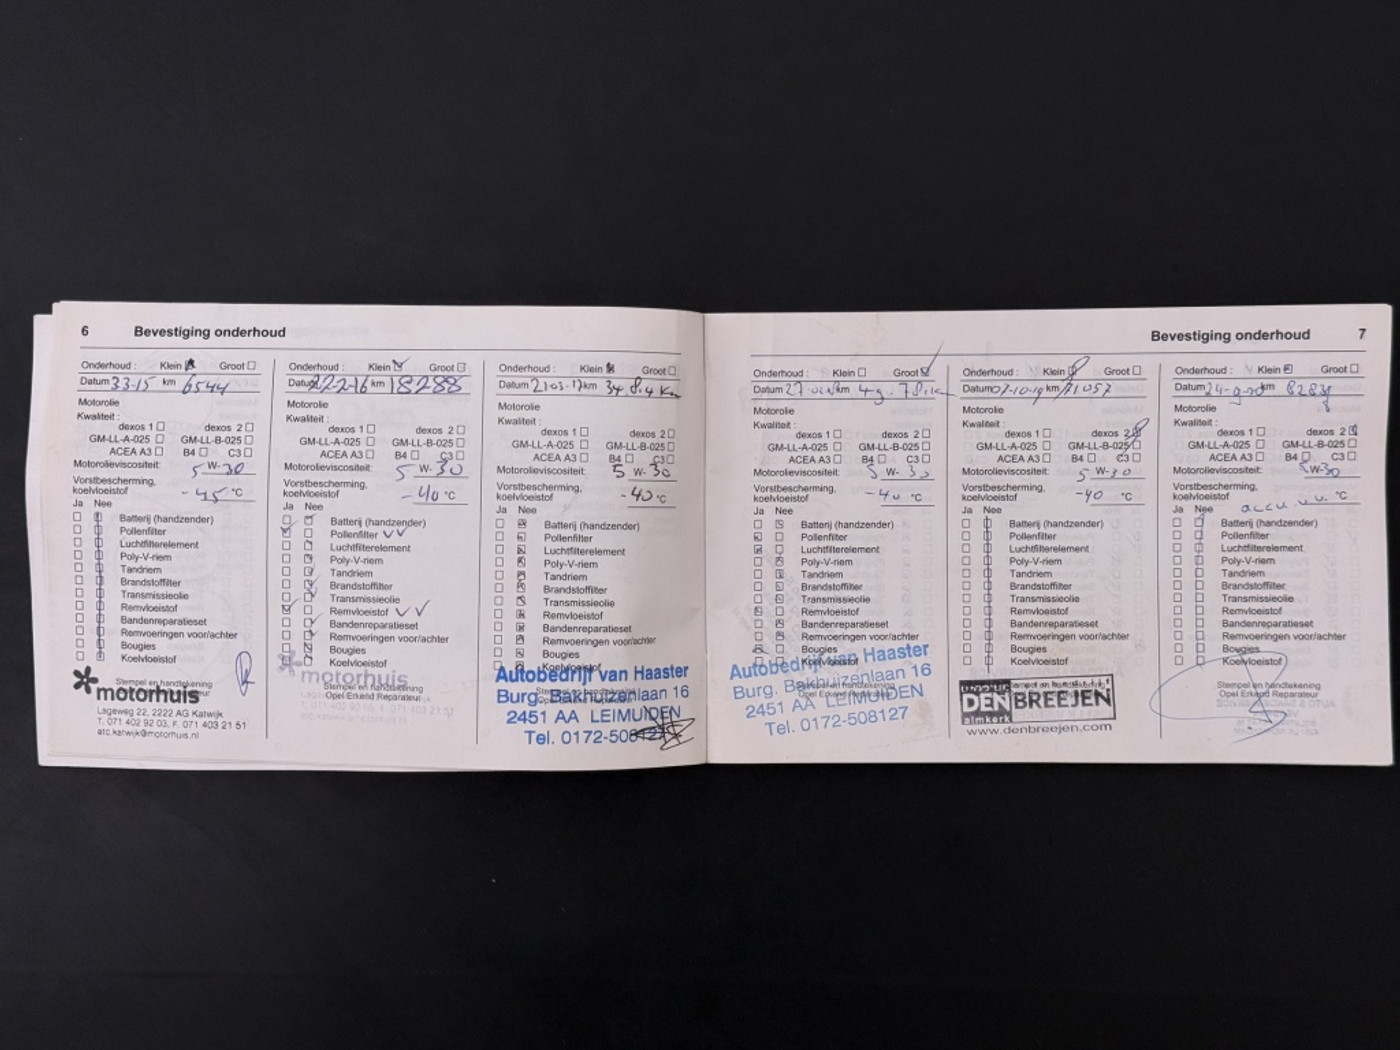 6 Bevestiging onderhoud
Onderhoud : Klein Groot
Datum 33-15 km 6544
Motorolie
Kwaliteit :
dexos 1 dexos 2
GM-LL-A-025 GM-LL-B-025
ACEA A3 B4 C3
Motorolieviscositeit: 5 W-30
Vorstbescherming,
koelvloeistof -45 °C
Ja Nee
Batterij (handzender)
Pollenfilter
Luchtfilterelement
Poly-V-riem
Tandriem
Brandstoffilter
Transmissieolie
Remvloeistof
Bandenreparatieset
Remvoeringen voor/achter
Bougies
Koelvloeistof
Stempel en handtekening
motorhuis
Lageweg 22, 2222 AG Katwijk
T. 071 402 92 03, F. 071 403 21 51
atc.katwijk@motorhuis.nl
Onderhoud : Klein Groot
Datum 22-2-16 km 18288
Motorolie
Kwaliteit :
dexos 1 dexos 2
GM-LL-A-025 GM-LL-B-025
ACEA A3 B4 C3
Motorolieviscositeit: 5 W-30
Vorstbescherming,
koelvloeistof -40 °C
Ja Nee
Batterij (handzender)
Pollenfilter
Luchtfilterelement
Poly-V-riem
Tandriem
Brandstoffilter
Transmissieolie
Remvloeistof
Bandenreparatieset
Remvoeringen voor/achter
Bougies
Koelvloeistof
motorhuis
Stempel en handtekening
Opel Erkend Reparateur
Onderhoud : Klein Groot
Datum 21-03-17 km
Motorolie
Kwaliteit :
dexos 1 dexos 2
GM-LL-A-025 GM-LL-B-025
ACEA A3 B4 C3
Motorolieviscositeit: 5 W-30
Vorstbescherming,
koelvloeistof -40 °C
Ja Nee
Batterij (handzender)
Pollenfilter
Luchtfilterelement
Poly-V-riem
Tandriem
Brandstoffilter
Transmissieolie
Remvloeistof
Bandenreparatieset
Remvoeringen voor/achter
Bougies
Koelvloeistof
Autobedrijf van Haaster
Burg. Bakhuizenlaan 16
2451 AA LEIMUIDEN
Tel. 0172-508127
Bevestiging onderhoud 7
Onderhoud : Klein Groot
Datum km
Motorolie
Kwaliteit :
dexos 1 dexos 2
GM-LL-A-025 GM-LL-B-025
ACEA A3 B4 C3
Motorolieviscositeit: 5 W-30
Vorstbescherming,
koelvloeistof -40 °C
Ja Nee
Batterij (handzender)
Pollenfilter
Luchtfilterelement
Poly-V-riem
Tandriem
Brandstoffilter
Transmissieolie
Remvloeistof
Bandenreparatieset
Remvoeringen voor/achter
Bougies
Koelvloeistof
Autobedrijf van Haaster
Burg. Bakhuizenlaan 16
2451 AA LEIMUIDEN
Tel. 0172-508127
Onderhoud : Klein Groot
Datum 07-10-19 km 71057
Motorolie
Kwaliteit :
dexos 1 dexos 2
GM-LL-A-025 GM-LL-B-025
ACEA A3 B4 C3
Motorolieviscositeit: 5 W-30
Vorstbescherming,
koelvloeistof -40 °C
Ja Nee
Batterij (handzender)
Pollenfilter
Luchtfilterelement
Poly-V-riem
Tandriem
Brandstoffilter
Transmissieolie
Remvloeistof
Bandenreparatieset
Remvoeringen voor/achter
Bougies
Koelvloeistof
DEN BREEJEN
almkerk
www.denbreejen.com
Onderhoud : Klein Groot
Datum km
Motorolie
Kwaliteit :
dexos 1 dexos 2
GM-LL-A-025 GM-LL-B-025
ACEA A3 B4 C3
Motorolieviscositeit: 5 W-30
Vorstbescherming,
koelvloeistof °C
Ja Nee
Batterij (handzender)
Pollenfilter
Luchtfilterelement
Poly-V-riem
Tandriem
Brandstoffilter
Transmissieolie
Remvloeistof
Bandenreparatieset
Remvoeringen voor/achter
Bougies
Koelvloeistof
Stempel en handtekening
Opel Erkend Reparateur